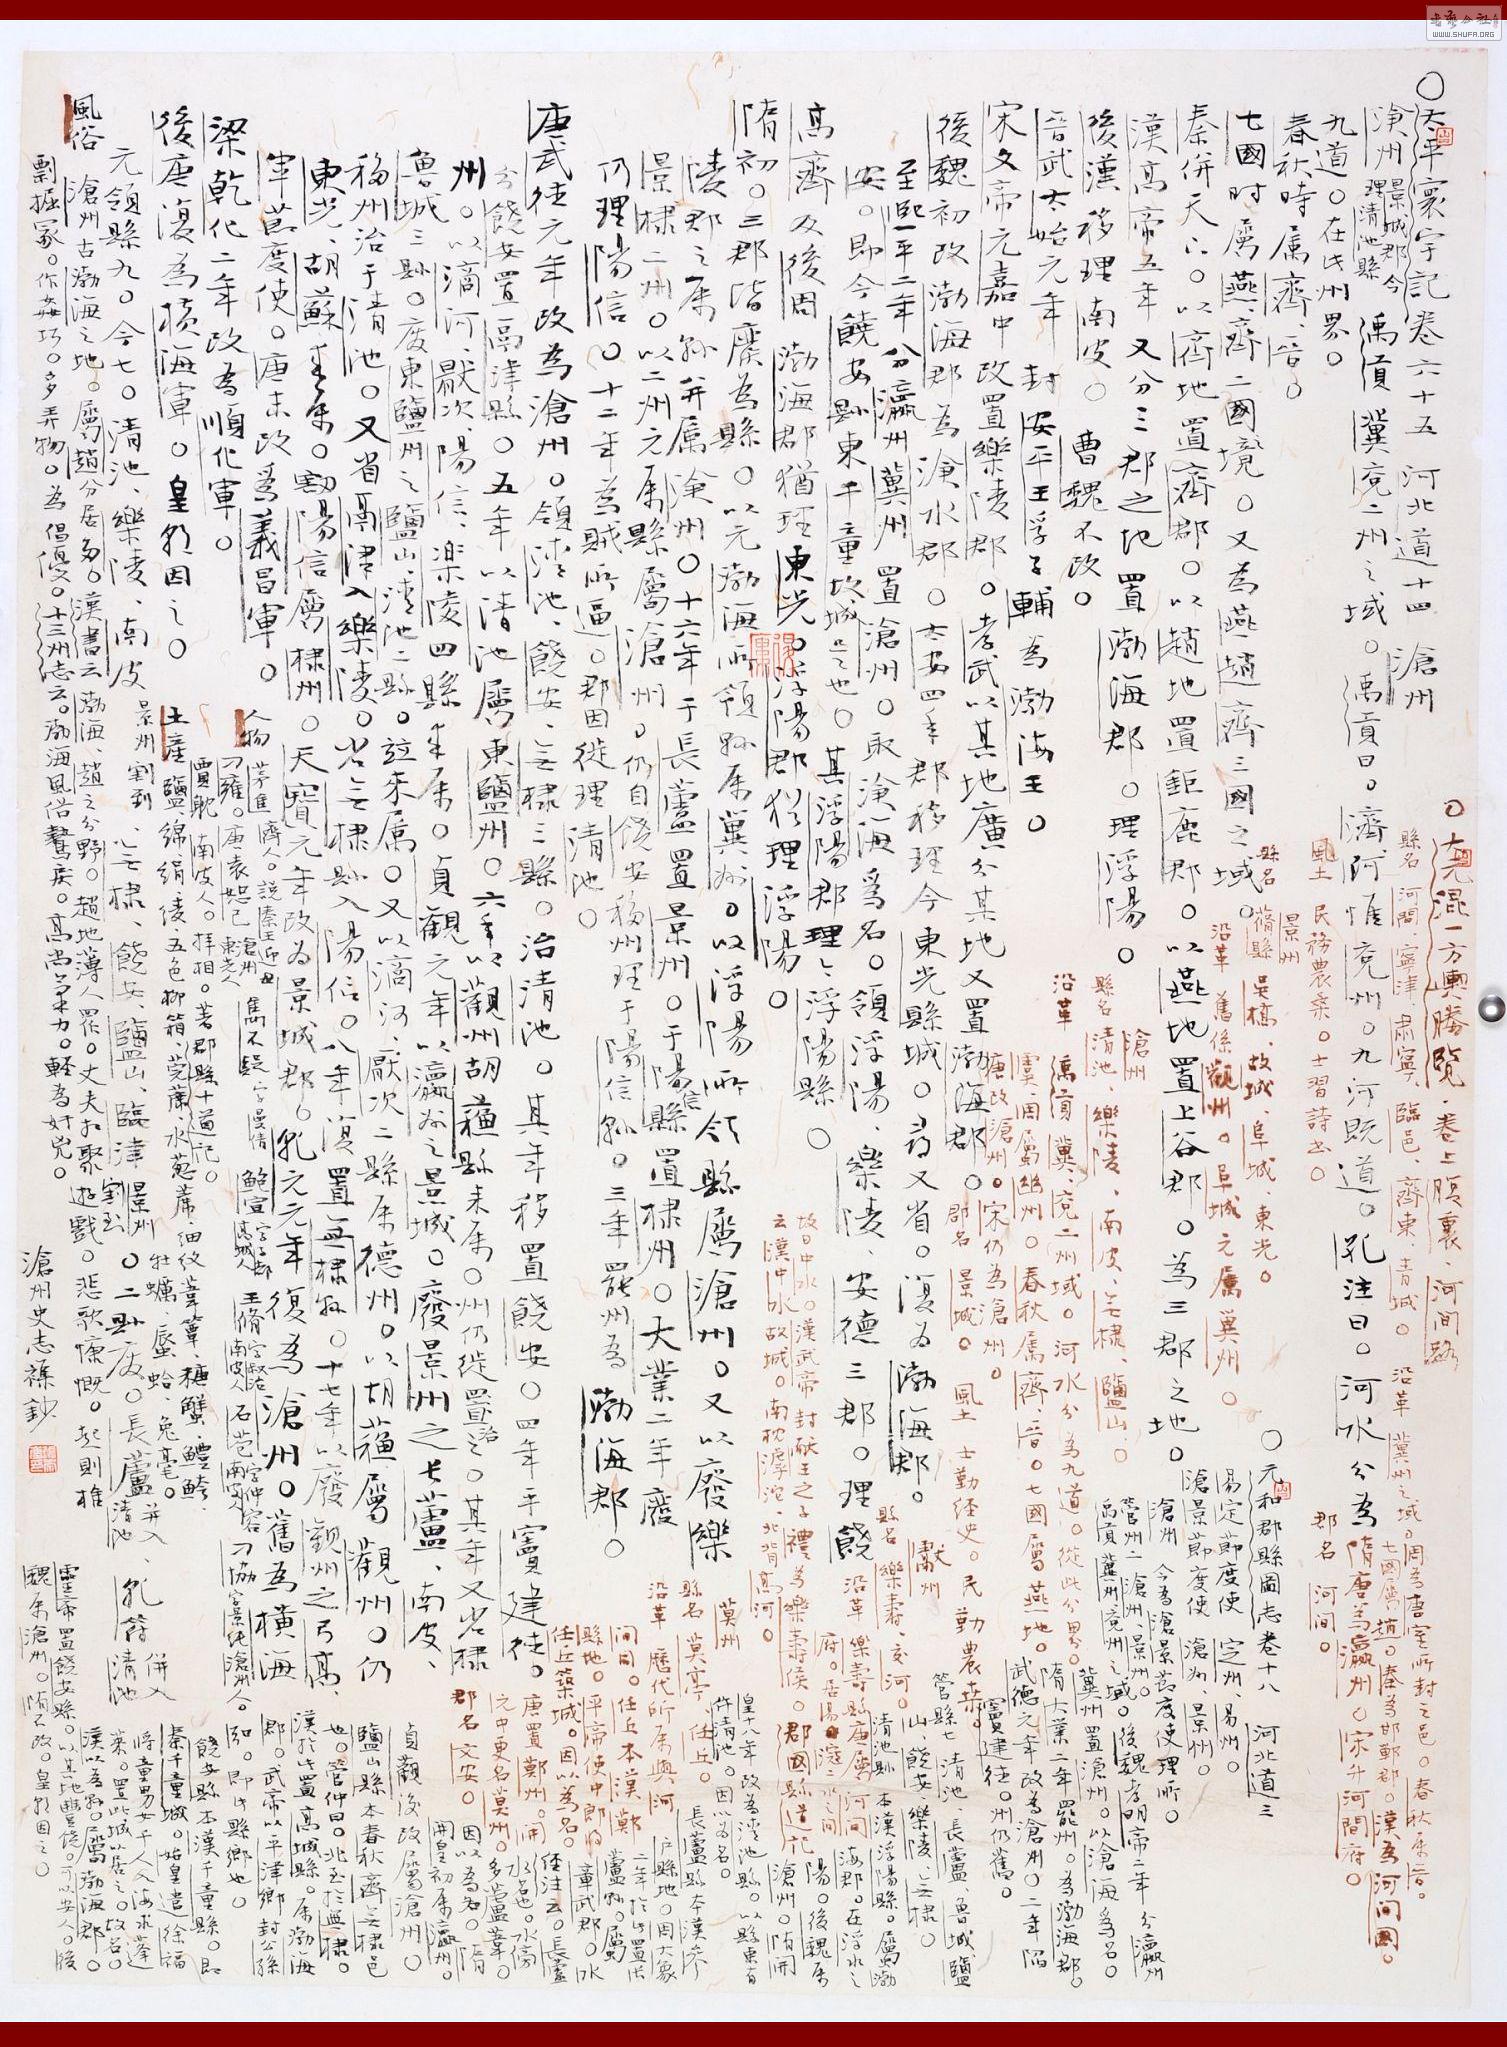 太平寰宇記卷六十五 河北道十四 滄州
滄州 景城郡今理清池縣 禹貢冀兗二州之域。禹貢曰。濟河惟兗州。九河既道。孔注曰。河水分為
九道。在此州界。
春秋時屬齊、晉。
七國時屬燕、齊二國境。又為燕趙齊三國之域。
秦併天下。以齊地置齊郡。以趙地置鉅鹿郡。以燕地置上谷郡。為三郡之地。
漢高帝五年又分三郡之地置渤海郡。理浮陽。
後漢移理南皮。曹魏不改。
晉武太始元年封安平王孚子輔為渤海王。
宋文帝元嘉中改置樂陵郡。孝武以其地廣分其地又置渤海郡。
後魏初改渤海郡為滄水郡。太安四年郡移理今東光縣城。尋又省。復為渤海郡。
至熙平二年分瀛州冀州置滄州。取滄海為名。領浮陽、樂陵、安德三郡。理饒
安。即今饒安縣東千童故城是也。其浮陽郡理浮陽縣。
高齊及後周渤海郡猶理東光。浮陽郡猶理浮陽。
隋初。三郡皆廢為縣。以元渤海所領縣屬冀州。以浮陽所領縣屬滄州。又以廢樂
陵郡之屬縣并屬滄州。十六年于長蘆置景州。于陽信縣置棣州。大業二年廢
景棣二州。以二州之屬縣屬滄州。仍自饒安移州理于陽信縣。三年罷州為渤海郡。
仍理陽信。十二年為賊所逼。郡因徙理清池。
唐武德元年改為滄州。領清池、饒安、無棣三縣。治清池。其年移置饒安。四年平竇建德。
分饒安置鬲津縣。五年以清池屬東鹽州。六年以觀州胡蘇縣來屬。州仍徙置治之。其年又省棣
州。以滴河、厭次、陽信、樂陵四縣來屬。貞觀元年以瀛州之景城。廢景州之長蘆、南皮、
魯城三縣。廢東鹽州之鹽山、清池二縣。並來屬。又以滴河、厭次二縣屬德州。以胡蘇屬觀州。仍
移州治于清池。又省鬲津入樂陵。省無棣縣入陽信。八年復置無棣縣。十七年以廢觀州之弓高、
東光、胡蘇來屬。割陽信屬棣州。天寶元年改為景城郡。乾元元年復為滄州。舊為橫海
軍節度使。唐末改為義昌軍。
梁乾化二年改為順化軍。
後唐復為橫海軍。皇朝因之。
元領縣九。今七。清池、樂陵、南皮
景州割到 無棣、饒安、鹽山、臨津 景州割到。二縣廢。長蘆 併入清池、乾符 併入清池
人物
土產 鹽、綿、絹、綾、五色柳箱、莞蓆、水蔥蓆、細紋葦簟、糖蟹、鱧鮬
牡蠣、蜃蛤、兔毫。
風俗 滄州古渤海之地。屬趙分居多。漢書云渤海、趙之分野。趙地薄人眾。丈夫相聚遊戲。悲歌慷慨。起則椎
剽掘冢。作姦巧。多弄物。為倡優。十三州志云。渤海風俗鷙戾。高尚氣力。輕為奸兇。
滄州史志雜鈔
大元混一方輿勝覽、卷上 腹裏、河間路
縣名 河間、寧津、肅寧、臨邑、齊東、青城。沿革 冀州之域。周為唐室所封之邑。春秋屬晉。
七國屬趙。秦為邯鄲郡。漢為河間國。
隋唐為瀛州。宋升河間府。
郡名 河間。
風土 民務農桑。士習詩書。
景州
縣名 蓚縣、吳橋、故城、阜城、東光。
沿革 舊係觀州。阜城元屬冀州。
滄州
縣名 清池、樂陵、南皮、無棣、鹽山。
沿革 禹貢冀、兗二州域。河水分為九道。從此分界。
虞、周屬幽州。春秋屬齊、晉。七國屬燕地。
唐改滄州。宋仍為滄州。
郡名 景城。風土 士勤經史。民勤農桑。
獻州
縣名 樂壽、交河。
沿革 樂壽縣唐屬河間
故曰中水。漢武帝封獻王之子禮為樂壽侯。郡國縣道記
云漢中水故城。南枕滹沱、北背高河。
莫州
縣名 莫亭、任丘。
沿革 歷代所屬與河
間同。任丘本漢鄚
縣地。平帝使中郎將
任丘築城。因以為名。
唐置鄚州。開
元中更名莫州。
郡名 文安。
元和郡縣圖志卷十八 河北道三
易定節度使 定州、易州。
滄景節度使 滄州、景州。
滄州 今為滄景節度使理所。
管州二 滄州、景州。
禹貢冀州兗州之域。後魏孝明帝二年分瀛州
冀州置滄州。以滄海為名。
隋大業二年罷州。為渤海郡。
武德元年改為滄州。二年陷
竇建德。州仍舊。
管縣七 清池、長蘆、魯城、鹽
山、饒安、樂陵、無棣。
清池縣 本漢浮陽縣。屬渤
海郡。在浮水之
陽。後魏屬
滄州。隋開
皇十八年改為清池縣。以縣東有
仵清池。因以為名。
長蘆縣 本漢參
戶縣地。周大象
二年於此置長
蘆縣。屬
章武郡。水
經注云。長蘆
水名也。水傍
多蘆葦。
因以為名。隋
開皇初屬瀛州。
貞觀後改屬滄州。
鹽山縣 本春秋齊無棣邑
也。管仲曰。北至於無棣。
漢於此置高城縣。屬渤海
郡。武帝以平津鄉封公孫
弘。即此縣鄉也。
饒安縣 本漢千童縣。即
秦千童城。始皇遣徐福
將童男女千人入海求蓬
萊。置此城以居之。故名。
漢以為縣。屬渤海郡。
靈帝置饒安縣。以其地豐饒。可以安人。後
魏屬滄州。隋不改。皇朝因之。